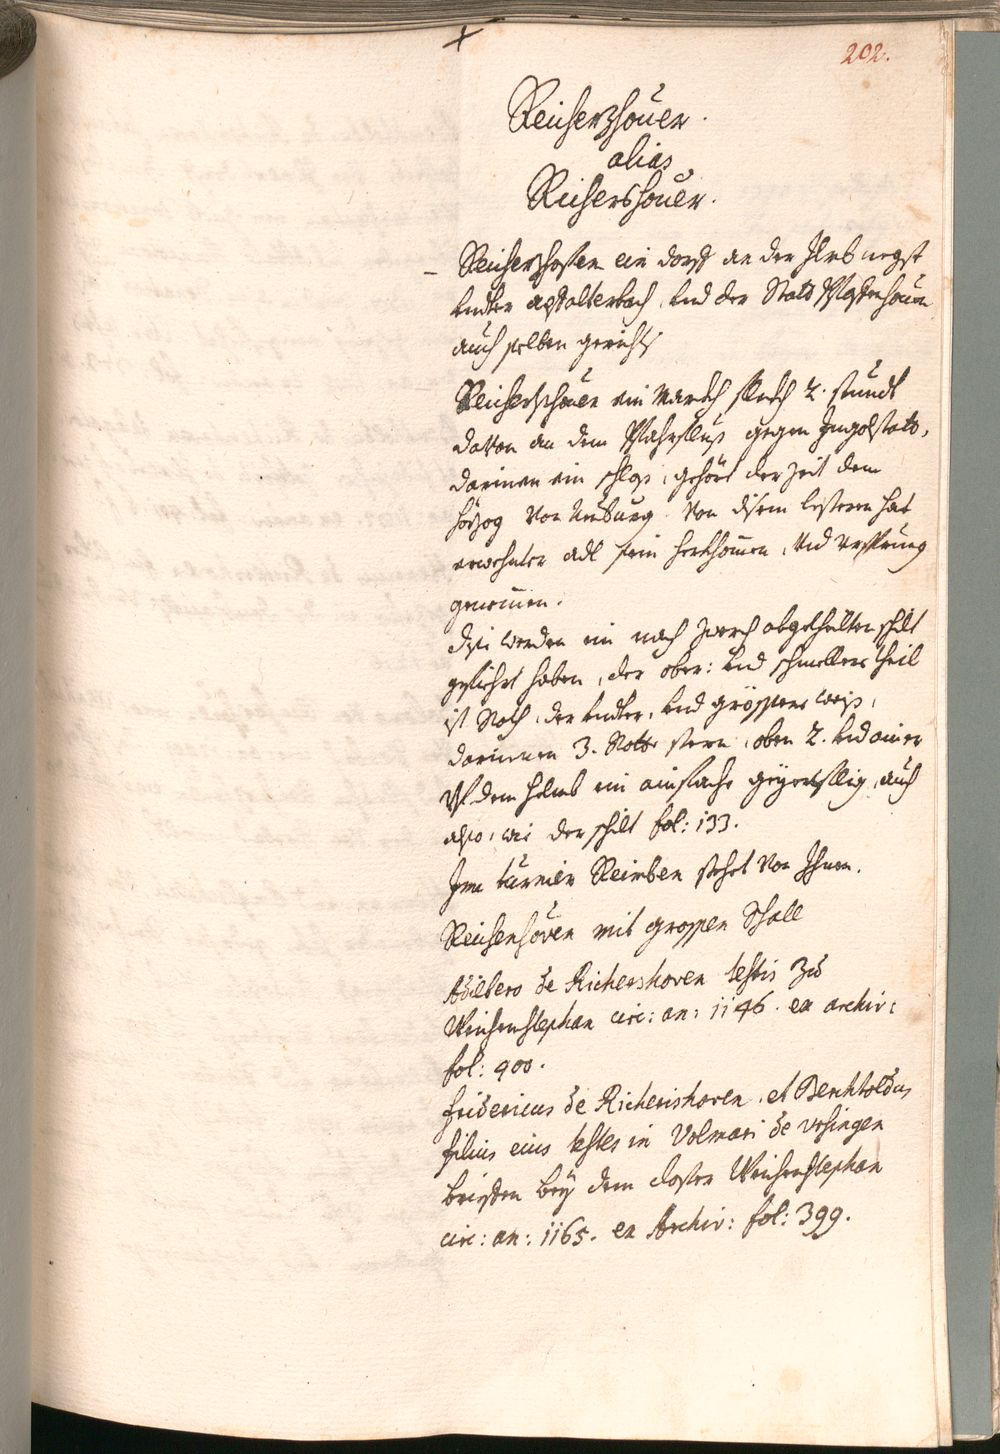 202.
Reicherzhouer.
alias
Richershouer.
Reicherzhofen ein dorff an der Ilmb negst
undter aschalterbach, und der Statt Pfaffenhouen
auch selben gerichts
Reicherschouen ein Marckh fleckh 2. stundt
daruon an dem Paahrfluss gegen Ingolstatt,
darinnen ein schloss, gehört der Zeit dem
hörzog von Neuburg. Von disem lesteren hat
erwehnter adl sein herkhommen, und ursprung
genommen.
dise werden ein nach zwerch abgethailten schilt
gefiehrt haben, der ober: und schmellere theil
ist Roth, der undter, und grössere weiss,
darinnen 3. Rotte stern, oben 2. und ainer
Vf dem helmb ein ainfache flig, auch
also, wie der schilt fol: 133.
Im turnier Reimben stehet von Ihnen.
Reichenhoven mit grossen Schall
Adilbero de Richershoven testis zu
Weichenstephan circ: an: 1146. ex archiv:
fol: 400.
Fridericus de Richerishoven, et Berchtoldus
filius eius testes in Volmari de
brieffen bey dem closter Weichenstephan
circ: an: 1165. ex Archiv: fol: 399.